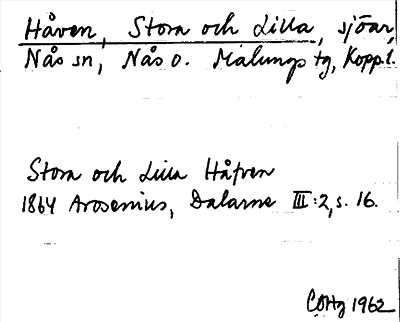 Håven, Stora och Lilla, sjöar,
Nås sn, Nås o. Malungs tg, Kopp.l.
Stora och Lilla Håfven
1864 Arosenius, Dalarne III:2, s. 16.
1962